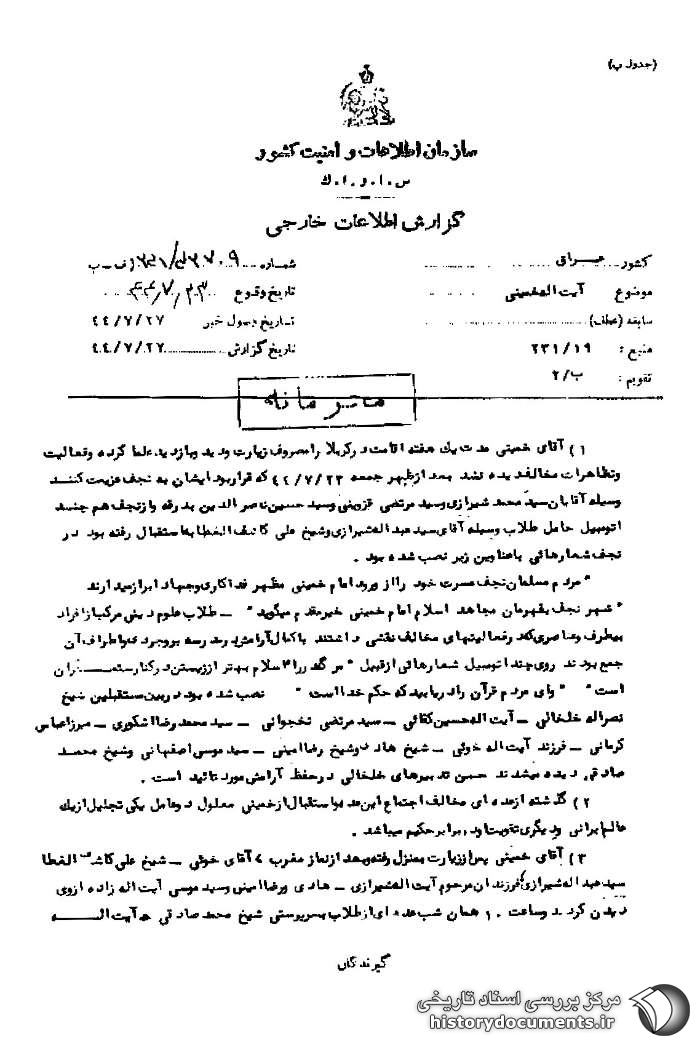 (جدول ب)
سازمان اطلاعات و امنیت کشور
س.ا.و.ا.ک
گزارش اطلاعات خارجی
کشور عراق
شماره
موضوع آیت اله خمینی
تاریخ وقوع ۴۴/۷/۲۳
سابقه (عطف)
تاریخ وصول خبر ۴۴/۷/۲۷
منبع : ۲۳۱/۱۹
تاریخ گزارش ۴۴/۷/۲۷
تقویم : ب/۲
محرمانه
۱) آقای خمینی مدت یک هفته اقامت در کربلا را مصروف زیارت و دید و بازدید علما کرده و فعالیت
و تظاهرات مخالف دیده نشد بعد از ظهر جمعه ۴۴/۷/۲۳ که قرار بود ایشان به نجف عزیمت کنند
وسیله آقایان سید محمد شیرازی و سید مرتضی قزوینی و سید حسین ناصرالدین بدرقه و از نجف هم چند
اتومبیل حامل طلاب وسیله آقای سید عبداله شیرازی و شیخ علی کاشف الغطا به استقبال رفته بود در
نجف شعارهائی با عناوین زیر نصب شده بود .
" مردم مسلمان نجف مسرت خود را از ورود امام خمینی مظهر فداکاری و جهاد ابراز میدارند
" شهر نجف بقهرمان مجاهد اسلام امام خمینی خیر مقدم میگوید " – طلاب علوم دینی مرکب از افراد
بیطرف و عناصری که در فعالیتهای مخالف نقشی داشتند با کمال آرامش در مدرسه بروجردی و اطراف آن
جمع بودند روی چند اتومبیل شعارهائی از قبیل " مرگ در راه اسلام بهتر از زیستن در کنار ستمگران
است " " وای مردم قرآن را دریابید که حکم خدا است " نصب شده بود در بین مستقبلین شیخ
نصراله خلخالی – آیت اله حسین کفائی – سید مرتضی نخجوانی – سید محمد رضا اشکوری – میرزا عباس
کرمانی – فرزند آیت اله خوئی – شیخ هادی و شیخ رضا امینی – سید موسی اصفهانی و شیخ محمد
صادقی دیده میشدند حسن تدبیرهای خلخالی در حفظ آرامش مورد تائید است .
۲) گذشته از عده ای مخالف اجتماع این عده و استقبال از خمینی معلول دو عامل یکی تجلیل از یک
عالم ایرانی و دیگری تقویت او در برابر حکیم میباشد .
۳) آقای خمینی پس از زیارت بمنزل رفته و بعد از نماز مغرب آقای خوئی – شیخ علی کاشف الغطا
سید عبداله شیرازی فرزندان مرحوم آیت اله شیرازی – هادی و رضا امینی و سید موسی آیت اله زاده از وی
دیدن کردند و ساعت ۱۰ همان شب عده ای از طلاب بسرپرستی شیخ محمد صادقی به آیت الـــه
گیرندگان
مرکز بررسی اسناد تاریخی
historydocuments.ir